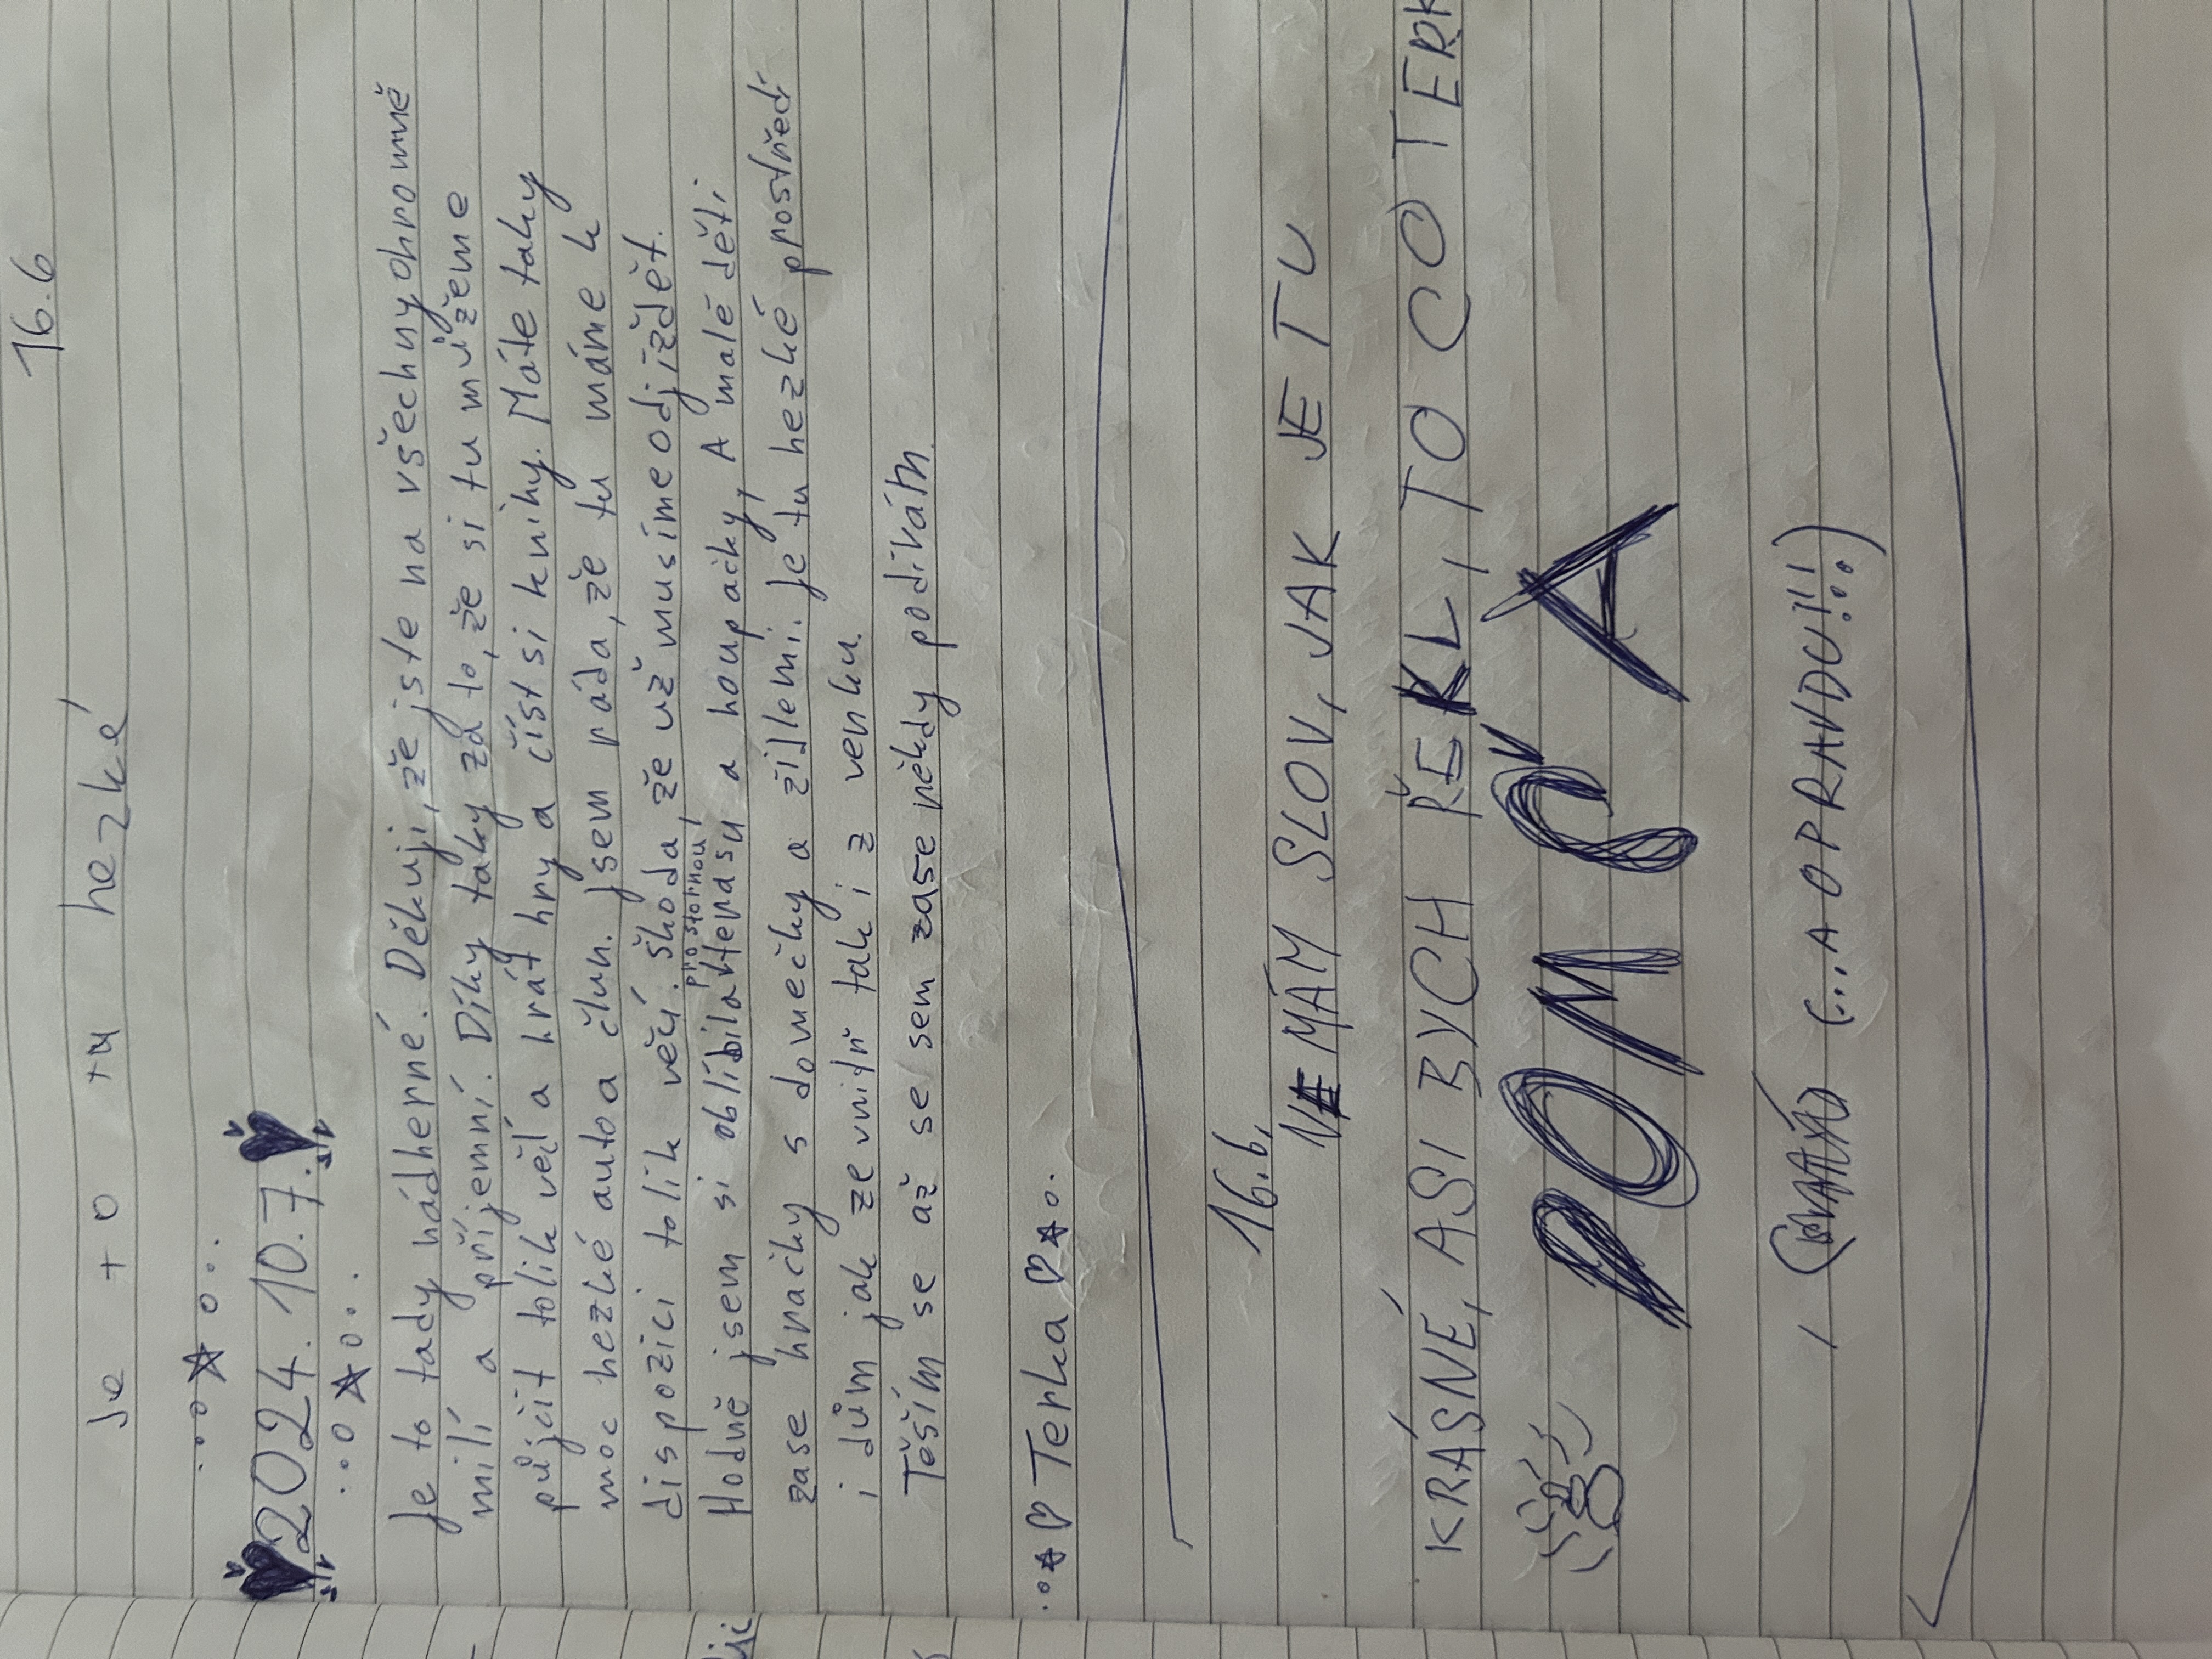 16.6
Je to tu hezké
2024.10.7.
Je to tady nádherné. Děkuji, že jste na všechny ohromně
milí a příjemní. Díky taky za to, že si tu můžeme
půjčit tolik věcí a hrát hry a číst si knihy. Máte taky
moc hezké auto a člun. Jsem ráda, že tu máme k
dispozici tolik věcí. škoda, že už musíme odjíždět.
Hodně jsem si oblíbila prostornou terasu a houpačky, A malé děti
zase hračky s domečky a židlemi. Je tu hezké prostředí
i dům jak ze vnitř tak i z venku.
Těším se až se sem zase někdy podívám.
Terka
16.6.
NEMÁM SLOV, JAK JE TU
KRÁSNÉ, ASI BYCH ŘEKL, TO CO TERK
(...A OPRAVDU!!!)